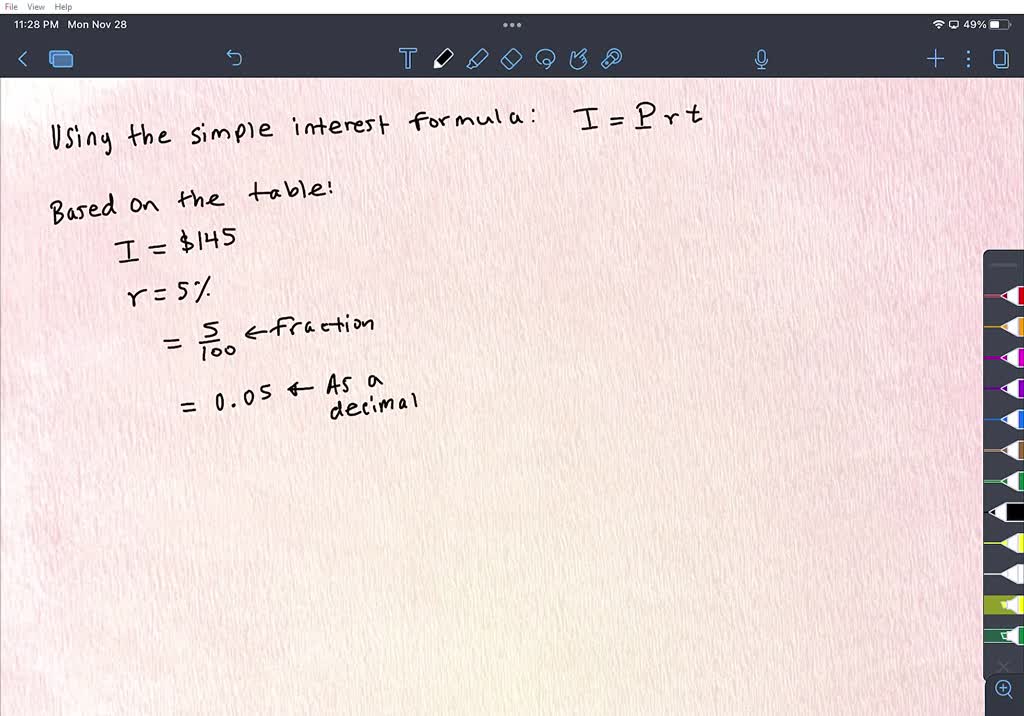 File View Help
11:28 PM Mon Nov 28
49%
T
Using the simple interest formula: I = Prt
Based on the table:
I = $145
r = 5%
= 5/100 ← fraction
= 0.05 ← As a
decimal